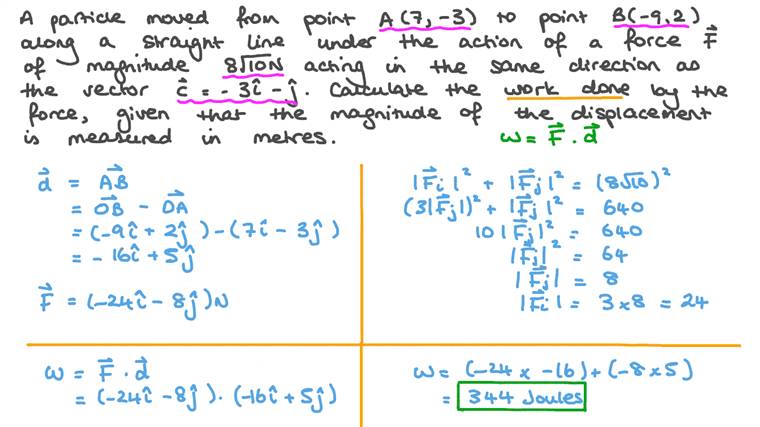 A particle moved from point A(7, -3) to point B(-9, 2)
along a straight line under the action of a force F⃗
of magnitude 8√10 N acting in the same direction as
the vector c⃗ = -3î - ĵ. Calculate the work done by the
force, given that the magnitude of the displacement
is measured in metres.
W = F⃗ · d⃗
d⃗ = AB⃗
= OB⃗ - OA⃗
= (-9î + 2ĵ) - (7î - 3ĵ)
= -16î + 5ĵ
F⃗ = (-24î - 8ĵ)N
|F⃗i|² + |F⃗j|² = (8√10)²
(3|F⃗j|)² + |F⃗j|² = 640
10|F⃗j|² = 640
|F⃗j|² = 64
|F⃗j| = 8
|F⃗i| = 3 × 8 = 24
W = F⃗ · d⃗
= (-24î - 8ĵ) · (-16î + 5ĵ)
W = (-24 × -16) + (-8 × 5)
= 344 Joules